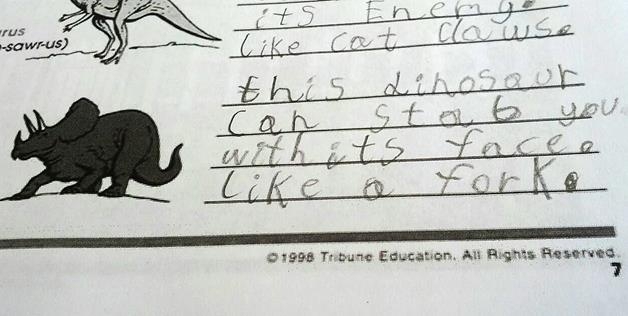 its Enemy.
rus
like cat clawse
-sawr-us)
this dinosaur
can stab you
with its face.
like a fork.
©1998 Tribune Education. All Rights Reserved.
7